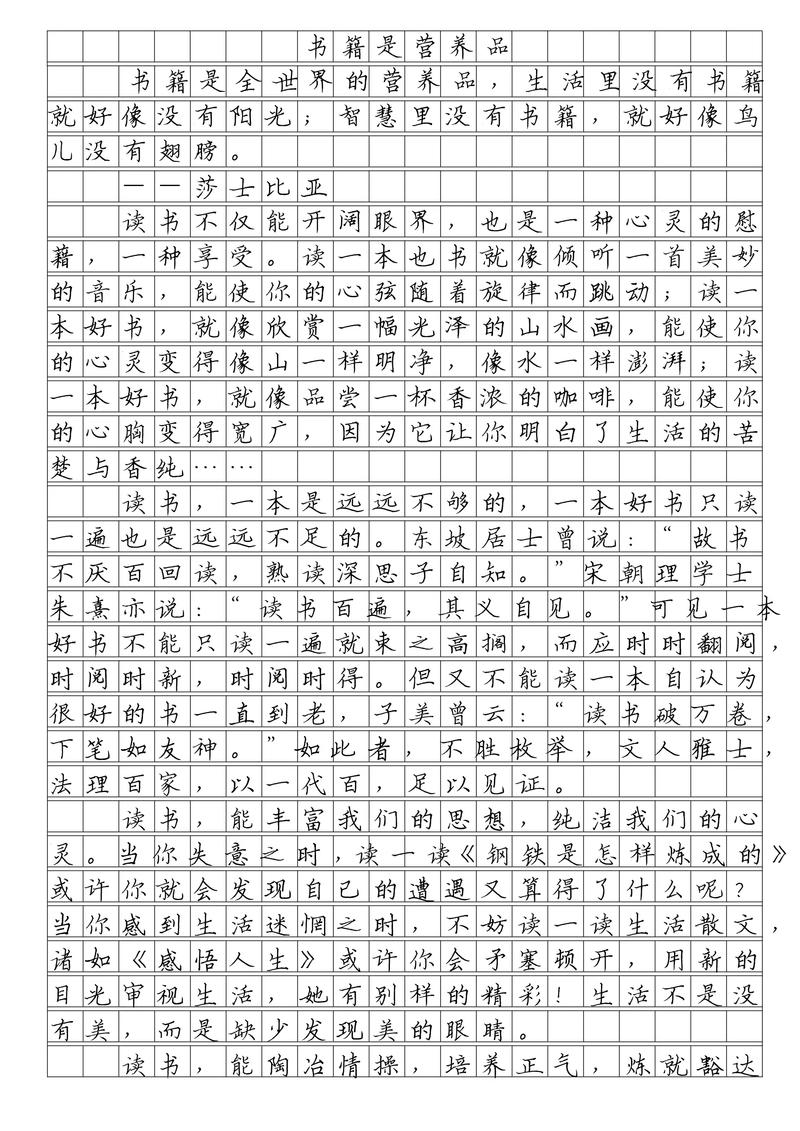 书籍是营养品
书籍是全世界的营养品，生活里没有书籍
就好像没有阳光；智慧里没有书籍，就好像鸟
儿没有翅膀。
——莎士比亚
读书不仅能开阔眼界，也是一种心灵的慰
藉，一种享受。读一本也书就像倾听一首美妙
的音乐，能使你的心弦随着旋律而跳动；读一
本好书，就像欣赏一幅光泽的山水画，能使你
的心灵变得像山一样明净，像水一样澎湃；读
一本好书，就像品尝一杯香浓的咖啡，能使你
的心胸变得宽广，因为它让你明白了生活的苦
楚与香纯……
读书，一本是远远不够的，一本好书只读
一遍也是远远不足的。东坡居士曾说：“故书
不厌百回读，熟读深思子自知。”宋朝理学士
朱熹亦说：“读书百遍，其义自见。”可见一本
好书不能只读一遍就束之高搁，而应时时翻阅，
时阅时新，时阅时得。但又不能读一本自认为
很好的书一直到老，子美曾云：“读书破万卷，
下笔如友神。”如此者，不胜枚举，文人雅士，
法理百家，以一代百，足以见证。
读书，能丰富我们的思想，纯洁我们的心
灵。当你失意之时，读一读《钢铁是怎样炼成的》
或许你就会发现自己的遭遇又算得了什么呢？
当你感到生活迷惘之时，不妨读一读生活散文，
诸如《感悟人生》或许你会矛塞顿开，用新的
目光审视生活，她有别样的精彩！生活不是没
有美，而是缺少发现美的眼睛。
读书，能陶冶情操，培养正气，炼就豁达